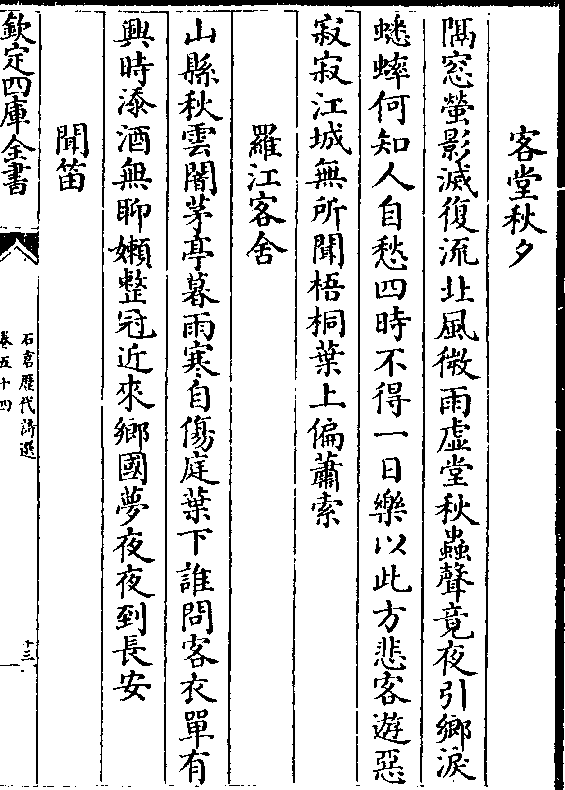 客堂秋夕
隔窓螢影滅復流北風微雨虚堂秋蟲聲竟夜引鄉淚
蟋蟀何知人自愁四時不得一日樂以此方悲客遊惡
寂寂江城無所聞梧桐葉上偏蕭索
羅江客舍
山縣秋雲闇茅亭暮雨寒自傷庭葉下誰問客衣單有
興時添酒無聊嬾整冠近來鄉國夢夜夜到長安
聞笛
欽定四庫全書
石倉歴代詩選
卷五十四
十三